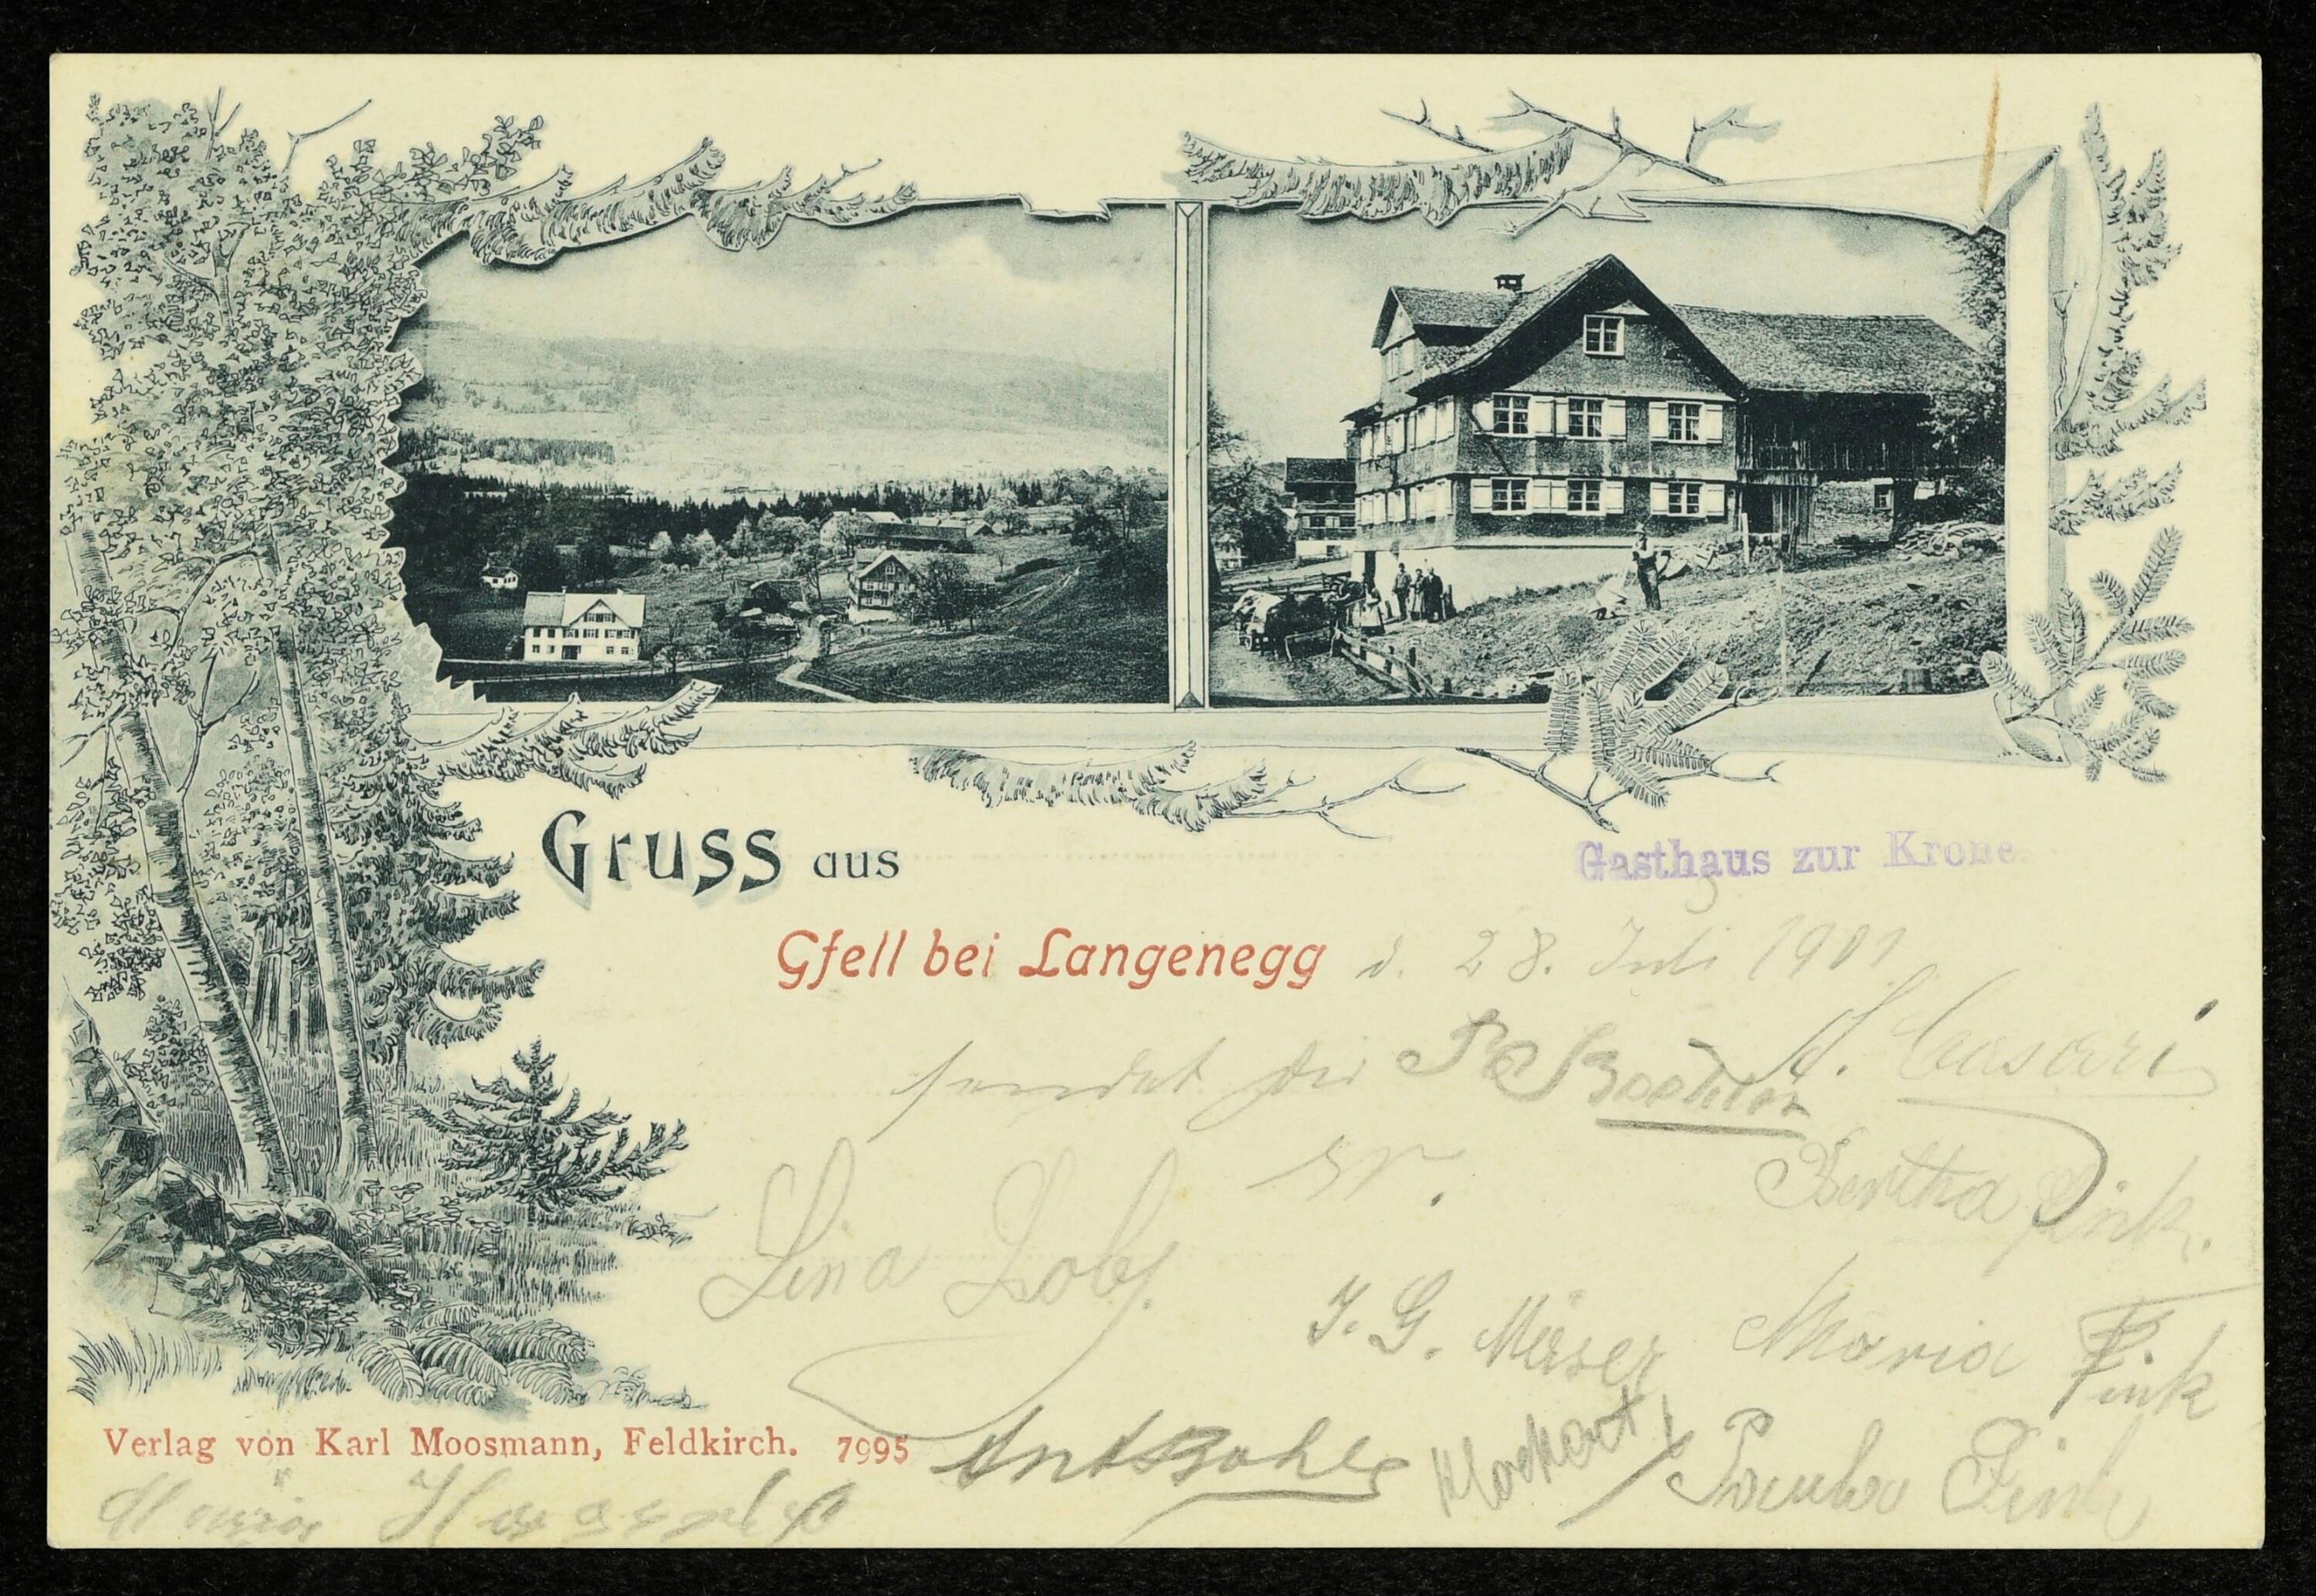 Gruss aus
Gasthaus zur Krone
Gfell bei Langenegg d. 28. Juli 1901
sendet die
A. Casari
Bertha Fink.
Lina
J. G. Mäser
Maria Fink
Verlag von Karl Moosmann, Feldkirch. 7995
Paula Fink
Maria